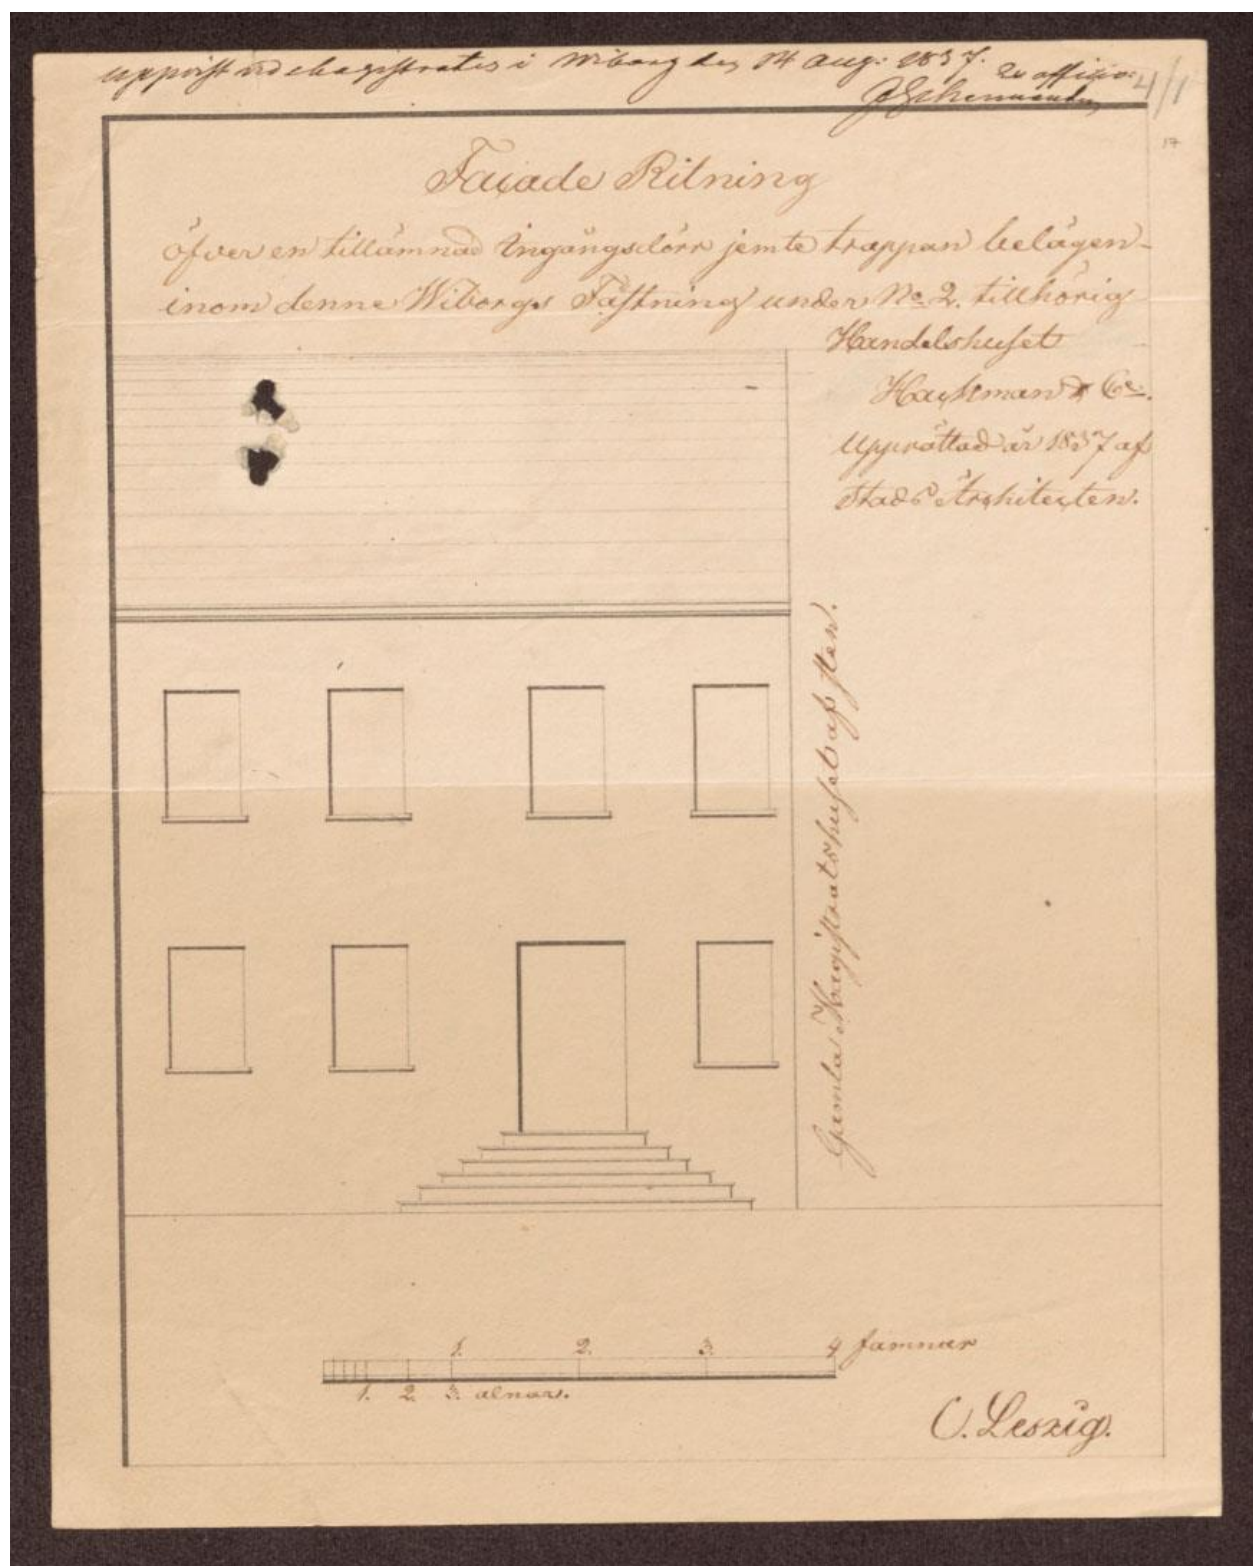 uppvist vid Magistraten i Wiborg den 14 Aug: 1837.
Ex officio:
4/1
17
Façade Ritning
öfver en tillämnad Ingångsdörr jemte trappan belägen
inom denne Wiborgs Fästning under No 2. tillhörig
Handelshuset
Hackman & Co.
Upprättad år 1837 af
Stads Architecten.
Gamla Magistratshuset af sten.
1. 2. 3. 4 famnar
1. 2. 3. alnar.
C. Leszig.